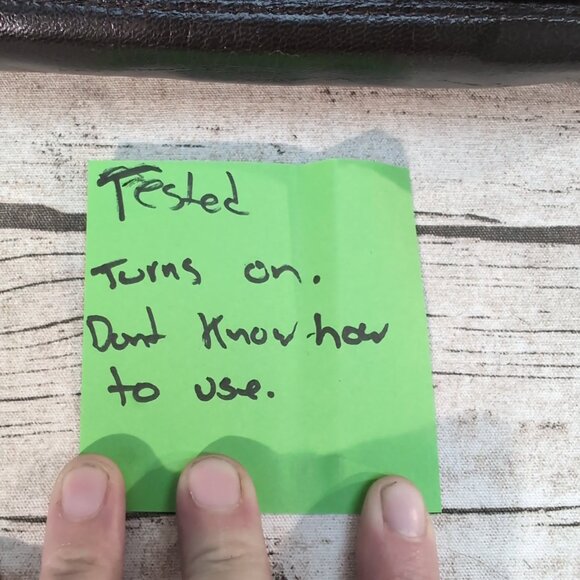 Tested
Turns on.
Dont Know how
to use.